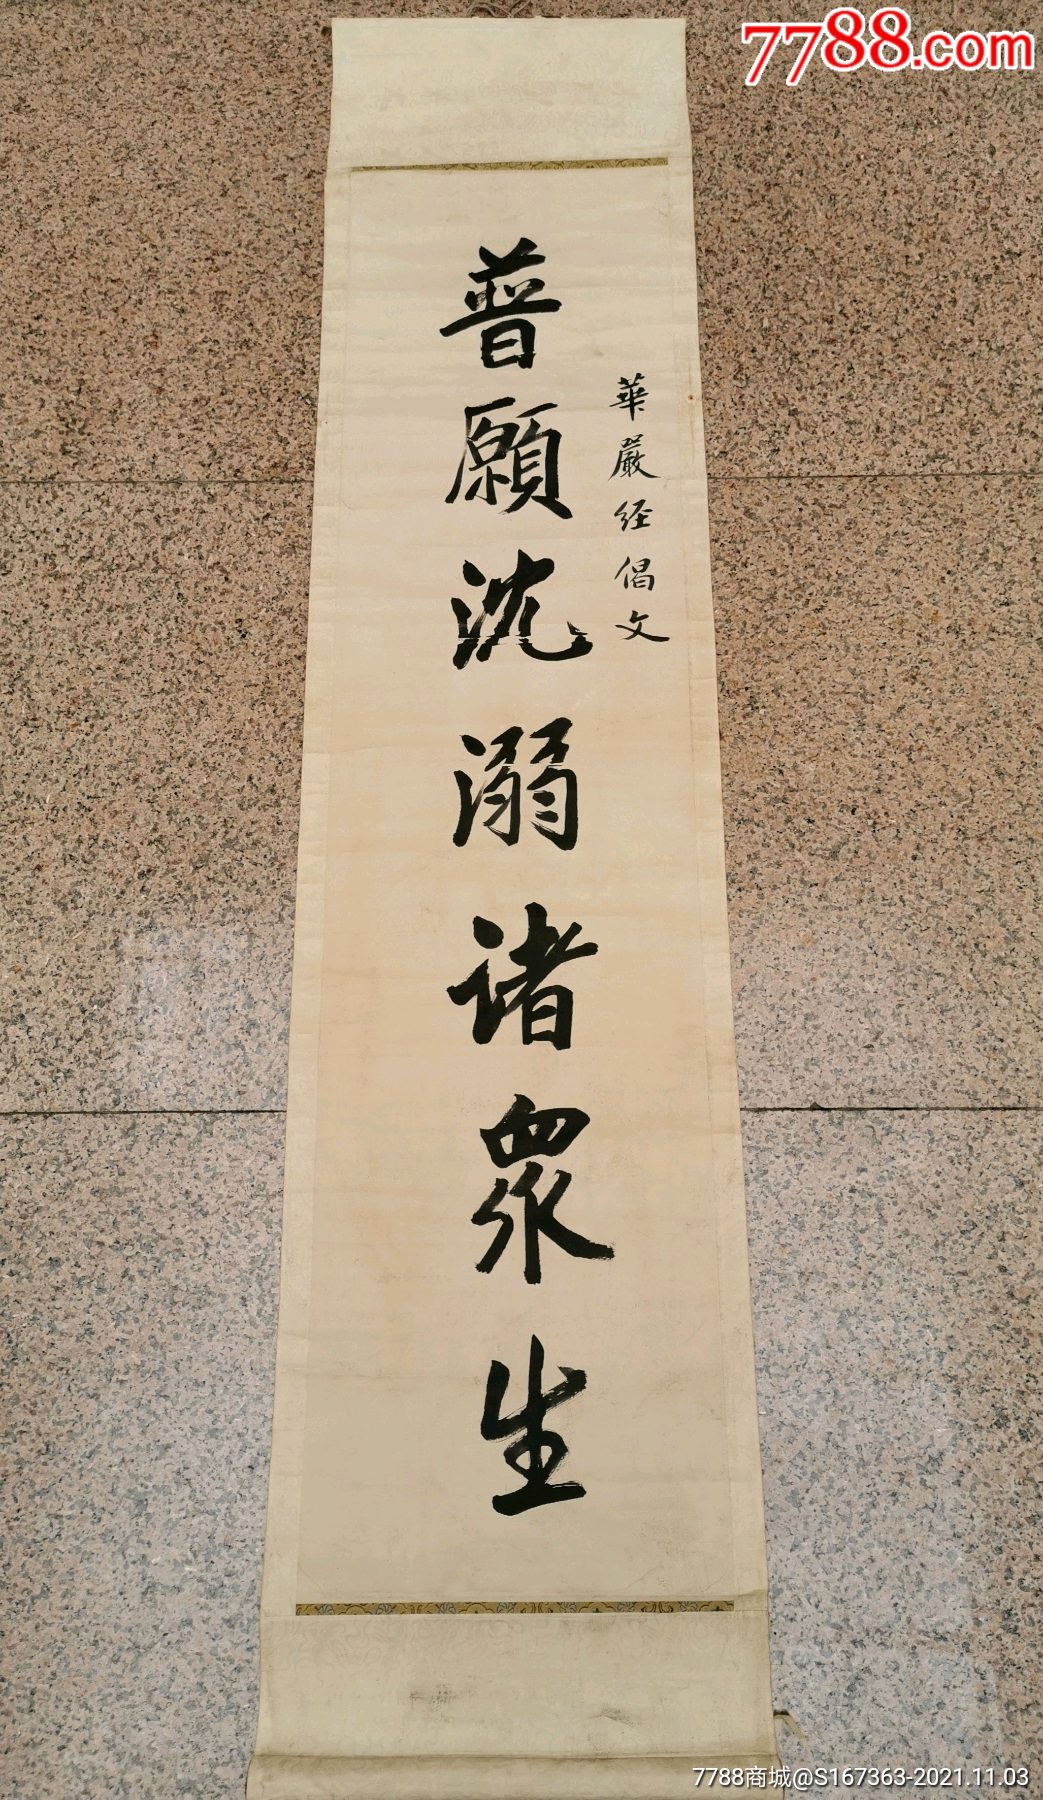 7788.com
華嚴经偈文
普願沈溺诸眾生
7788商城@S167363-2021.11.03